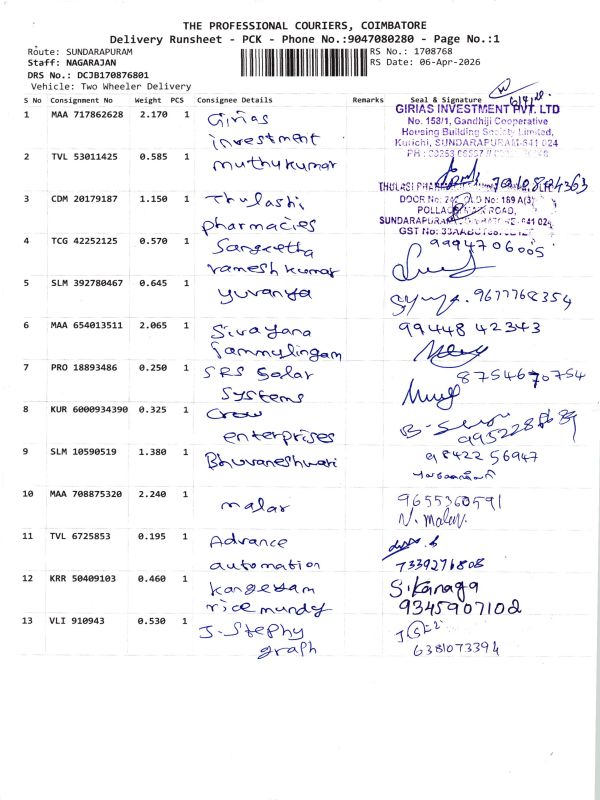 THE PROFESSIONAL COURIERS, COIMBATORE
Delivery Runsheet - PCK - Phone No.:9047080280 - Page No.:1
Route: SUNDARAPURAM
RS No.: 1708768
Staff: NAGARAJAN
RS Date: 06-Apr-2026
DRS No.: DCJB170876801
Vehicle: Two Wheeler Delivery
S No Consignment No Weight PCS Consignee Details Remarks Seal & Signature
1 MAA 717862628 2.170 1 Girias
investment
GIRIAS INVESTMENT PVT. LTD
No. 158/1, Gandhiji Cooperative
Housing Building Society Limited,
Kurichi, SUNDARAPURAM-641 024
2 TVL 53011425 0.585 1 muthukumar
3 CDM 20179187 1.150 1 Thulashi
pharmacies
THULASI
DOOR No: No: 189 A(3)
ROAD,
SUNDARAPURAM
GST No:
4 TCG 42252125 0.570 1 Sangeetha
ramesh kumar
9994706005
5 SLM 392780467 0.645 1 yuvanya
9677768354
6 MAA 654013511 2.065 1 Sivayana
Sammylingam
99448 42343
7 PRO 18893486 0.250 1 SRS Solar
Systems
8754670754
8 KUR 6000934390 0.325 1 Crow
enterprises
9 SLM 10590519 1.380 1 Bhuvaneshwari
98422 56947
10 MAA 708875320 2.240 1 malar
9655360591
N. Malar
11 TVL 6725853 0.195 1 Advance
automation
7339276808
12 KRR 50409103 0.460 1 Kangeyam
rice mundy
S. Kanaga
9345907102
13 VLI 910943 0.530 1 J. Stephy
graph
6381073394